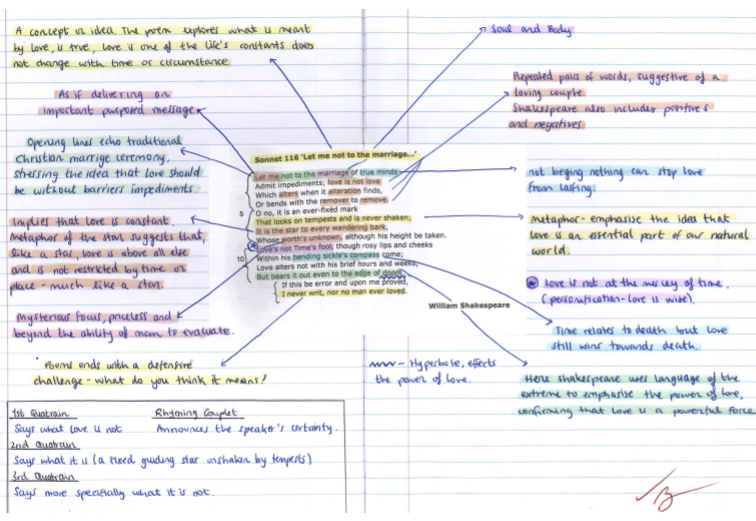 A concept or idea The poem explores what is meant
by love, is true, love is one of the life's constants does
not change with time or circumstance.
As if delivering an
important purposed message.
Opening lines echo traditional
Christian marrige ceremony,
stressing the idea that love should
be without barriers impediments.
Implies that love is constant.
Metaphor of the star suggests that,
like a star, love is above all else
and is not restricted by time or
place - much like a star.
Mysterious focus, priceless and
beyond the ability of man to evaluate.
Poems ends with a defensive
challenge - what do you think it means?
Sonnet 116 'Let me not to the marriage...'
Let me not to the marriage of true minds
Admit impediments; love is not love
Which alters when it alteration finds,
Or bends with the remover to remove.
5 O no, it is an ever-fixed mark
That looks on tempests and is never shaken;
It is the star to every wandering bark,
Whose worth's unknown, although his height be taken.
Love's not Time's fool, though rosy lips and cheeks
10 Within his bending sickle's compass come;
Love alters not with his brief hours and weeks,
But bears it out even to the edge of doom.
If this be error and upon me proved,
I never writ, nor no man ever loved.
William Shakespeare
Soul and Body
Repeated pairs of words, suggestive of a
loving couple
Shakespeare also includes positives
and negatives.
not beging nothing can stop love
from lasting.
Metaphor - emphasise the idea that
love is an essential part of our natural
world.
love is not at the mercy of time.
(personification - love is wise).
Time relates to death but love
still wins towards death.
Here shakespeare uses language of the
extreme to emphasise the power of love,
confirming that love is a powerful force
- Hyperbole, effects
the power of love.
1st Quatrain Rhyming Couplet
Says what love is not Announces the speaker's certainty.
2nd Quatrain
Says what it is (a fixed guiding star unshaken by tempests)
3rd Quatrain
Says more specifically what it is not.